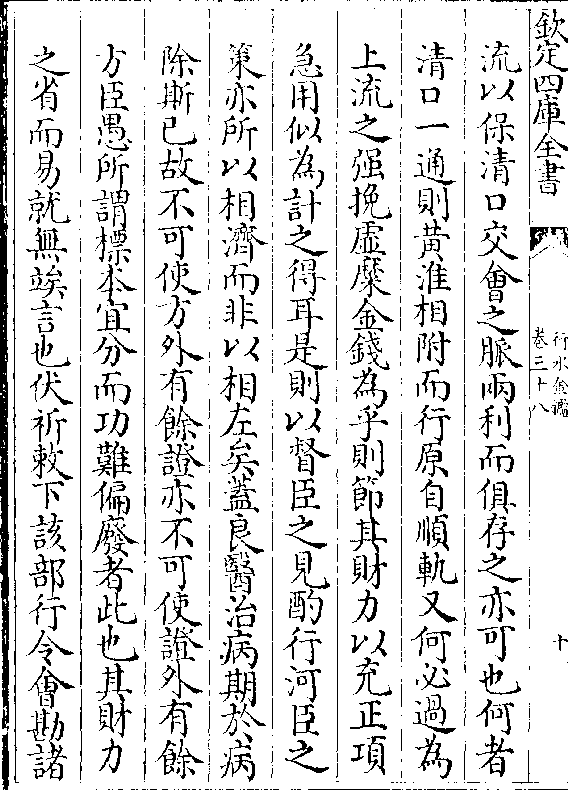 欽定四庫全書
行水金鑑
卷三十八
十
流以保清口交會之脈兩利而俱存之亦可也何者
清口一通則黄淮相附而行原自順軌又何必過為
上流之强挽虛糜金錢為乎則節其財力以充正項
急用似為計之得耳是則以督臣之見酌行河臣之
策亦所以相濟而非以相左矣蓋良醫治病期於病
除斯已故不可使方外有餘證亦不可使證外有餘
方臣愚所謂標本宜分而功難偏廢者此也其財力
之省而易就無竢言也伏祈敕下該部行令會勘諸